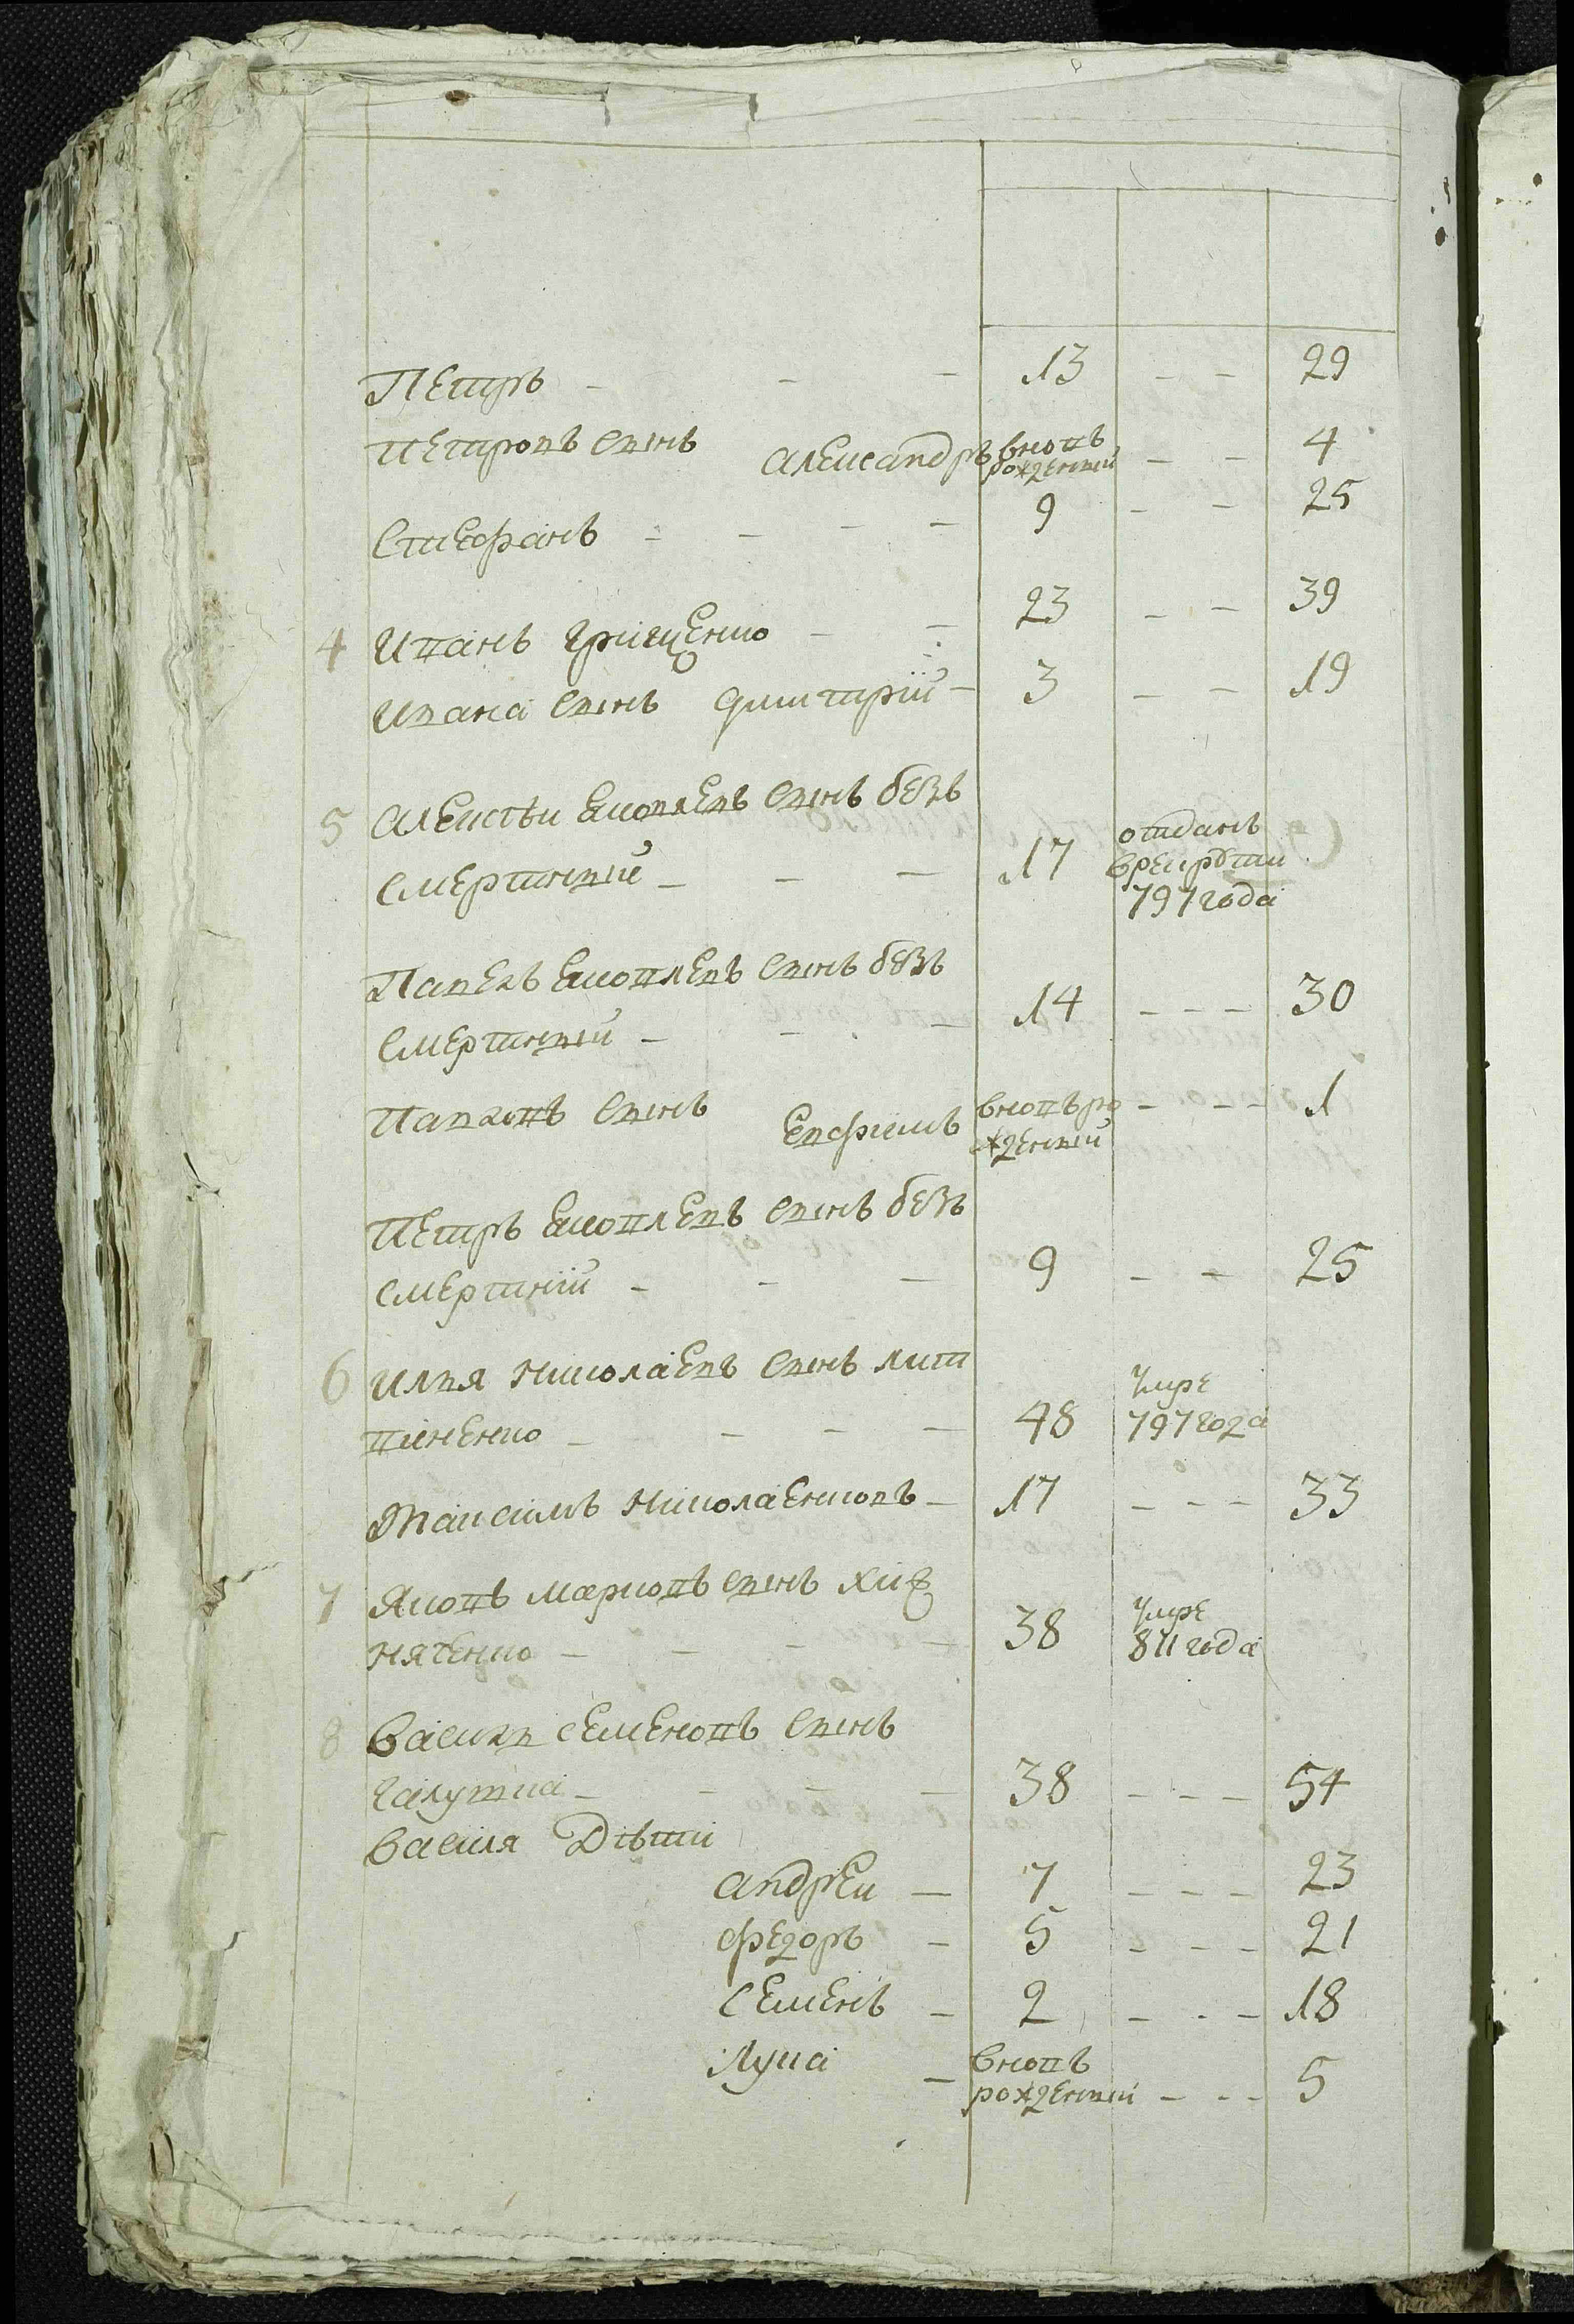 Петръ - - - 13 - - 29
Петровъ сынъ Александръ вновь рожденный - - 4
Стефанъ - - - - 9 - - 25
4 Иванъ Грищенко - - 23 - - 39
Ивана сынъ Дмитрій - 3 - - 19
5 Алексѣи Яковлевъ сынъ без
смертный - - - 17 отданъ
врекруты
797 года
Павелъ Яковлевъ сынъ без
смертный - - - 14 - - - 30
Павловъ сынъ Евфимъ вновь ро
жденный - - - 1
Петръ Яковлевъ сынъ без
смертній - - - 9 - - 25
6 Илья Николаевъ сынъ лит
виненко - - - - 48 умре
797 года
Максимъ Николаенковъ - 17 - - - 33
7 Яковъ Марковъ сынъ
няченко - - - - 38 умре
811 года
8 Василь Семеновъ сынъ
Галушка - - - - 38 - - - 54
Василя Дѣти
Андреи - 7 - - - 23
Федоръ - 5 - - - 21
Семенъ - 2 - - - 18
Лука - вновь
рожденный - - - 5